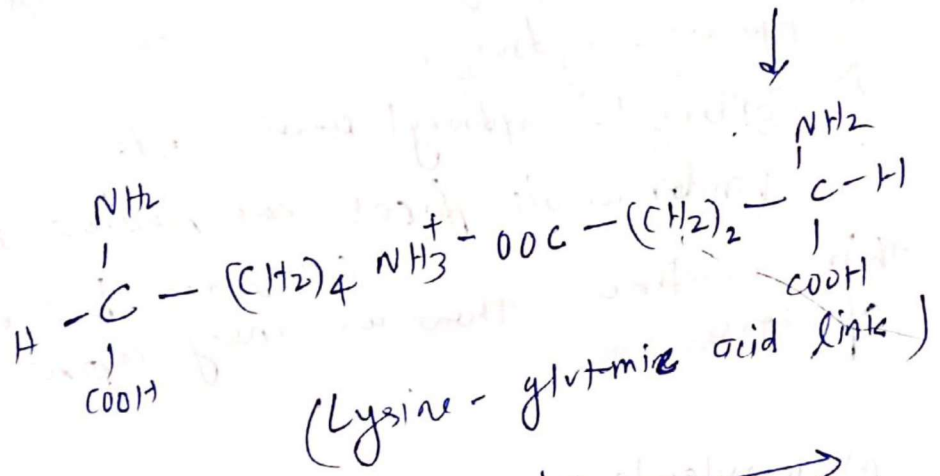 NH2
NH2
H - C - (CH2)4 NH3+ - OOC - (CH2)2 - C - H
COOH
COOH
(Lysine - glutmic acid link)